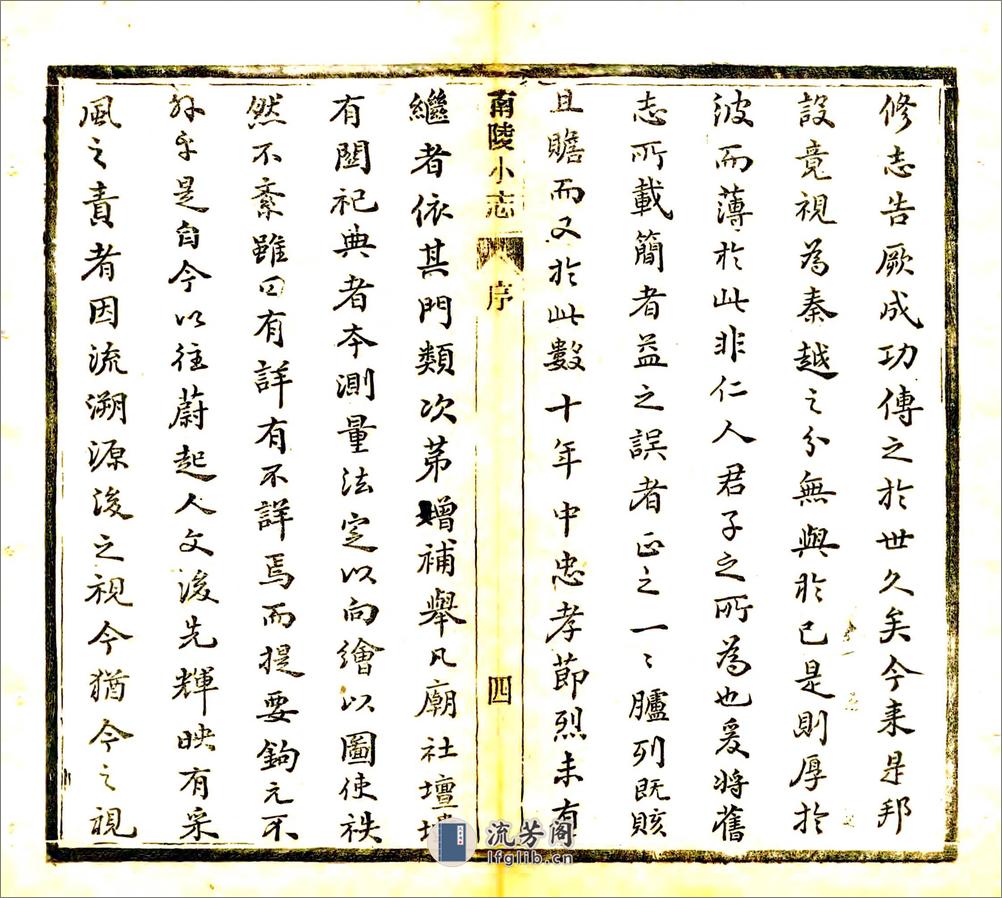 修志告厥成功傳之於世久矣今来是邦
設竟視為秦越之分無與於己是則厚於
彼而薄於此非仁人君子之所為也爰將舊
志所載簡者益之誤者正之一〻臚列既賅
且贍而又於此數十年中忠孝節烈未有
南陵小志 序 四
繼者依其門類次第增補舉凡廟社壇壝
有關祀典者本測量法定以向繪以圖使秩
然不紊雖曰有詳有不詳焉而提要鉤元不
外乎是自今以往蔚起人文後先輝映有采
風之責者因流溯源後之視今猶今之視
流芳阁
lfglib.cn